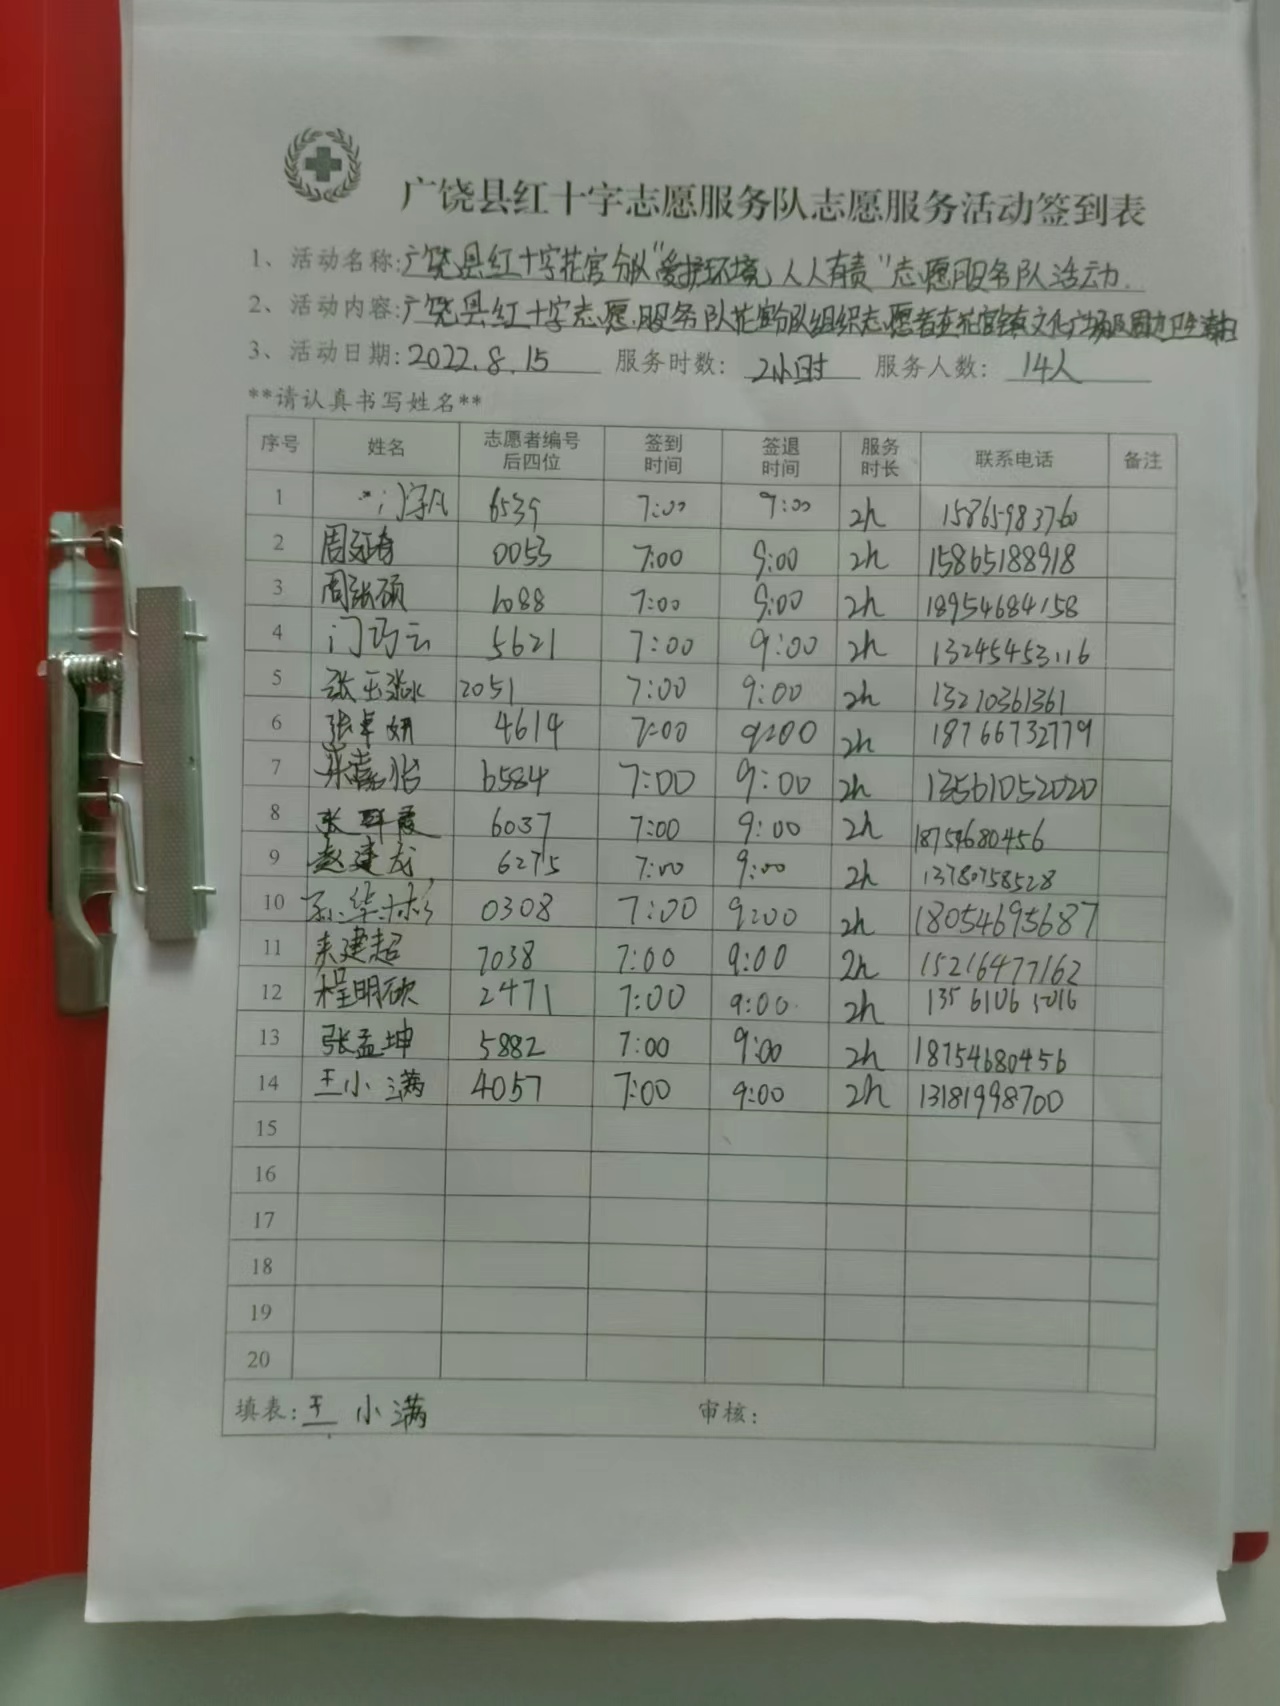 广饶县红十字志愿服务队志愿服务活动签到表
1、活动名称:广饶县红十字花官分队"爱护环境,人人有责"志愿服务队活动.
2、活动内容:广饶县红十字志愿服务队花官分队组织志愿者在花官镇文化广场及周边卫生清扫
3、活动日期:2022.8.15 服务时数:2小时 服务人数:14人
**请认真书写姓名**
序号 姓名 志愿者编号后四位 签到时间 签退时间 服务时长 联系电话 备注
1 门字凡 6539 7:00 9:00 2h 15865983760
2 周延春 0053 7:00 9:00 2h 15865188918
3 周张硕 6088 7:00 9:00 2h 18954684158
4 门巧云 5621 7:00 9:00 2h 13245453116
5 张玉 2051 7:00 9:00 2h 13210361361
6 张卓妍 4614 7:00 9:00 2h 18766732779
7 嘉怡 6584 7:00 9:00 2h 13561052020
8 张群霞 6037 7:00 9:00 2h 18754680456
9 赵建龙 6275 7:00 9:00 2h 13780758528
10 孙华彬 0308 7:00 9:00 2h 18054695687
11 来建超 7038 7:00 9:00 2h 15216477162
12 程明硕 2471 7:00 9:00 2h 13561065016
13 张孟坤 5882 7:00 9:00 2h 18754680456
14 王小满 4057 7:00 9:00 2h 13181998700
15
16
17
18
19
20
填表:王小满 审核: